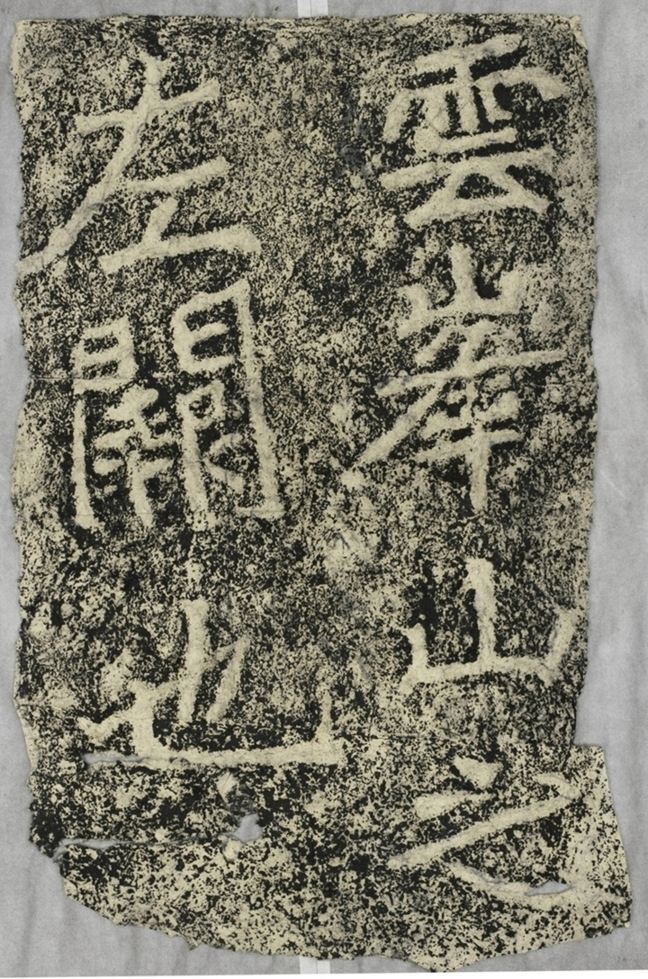 雲峯山之
左闕也